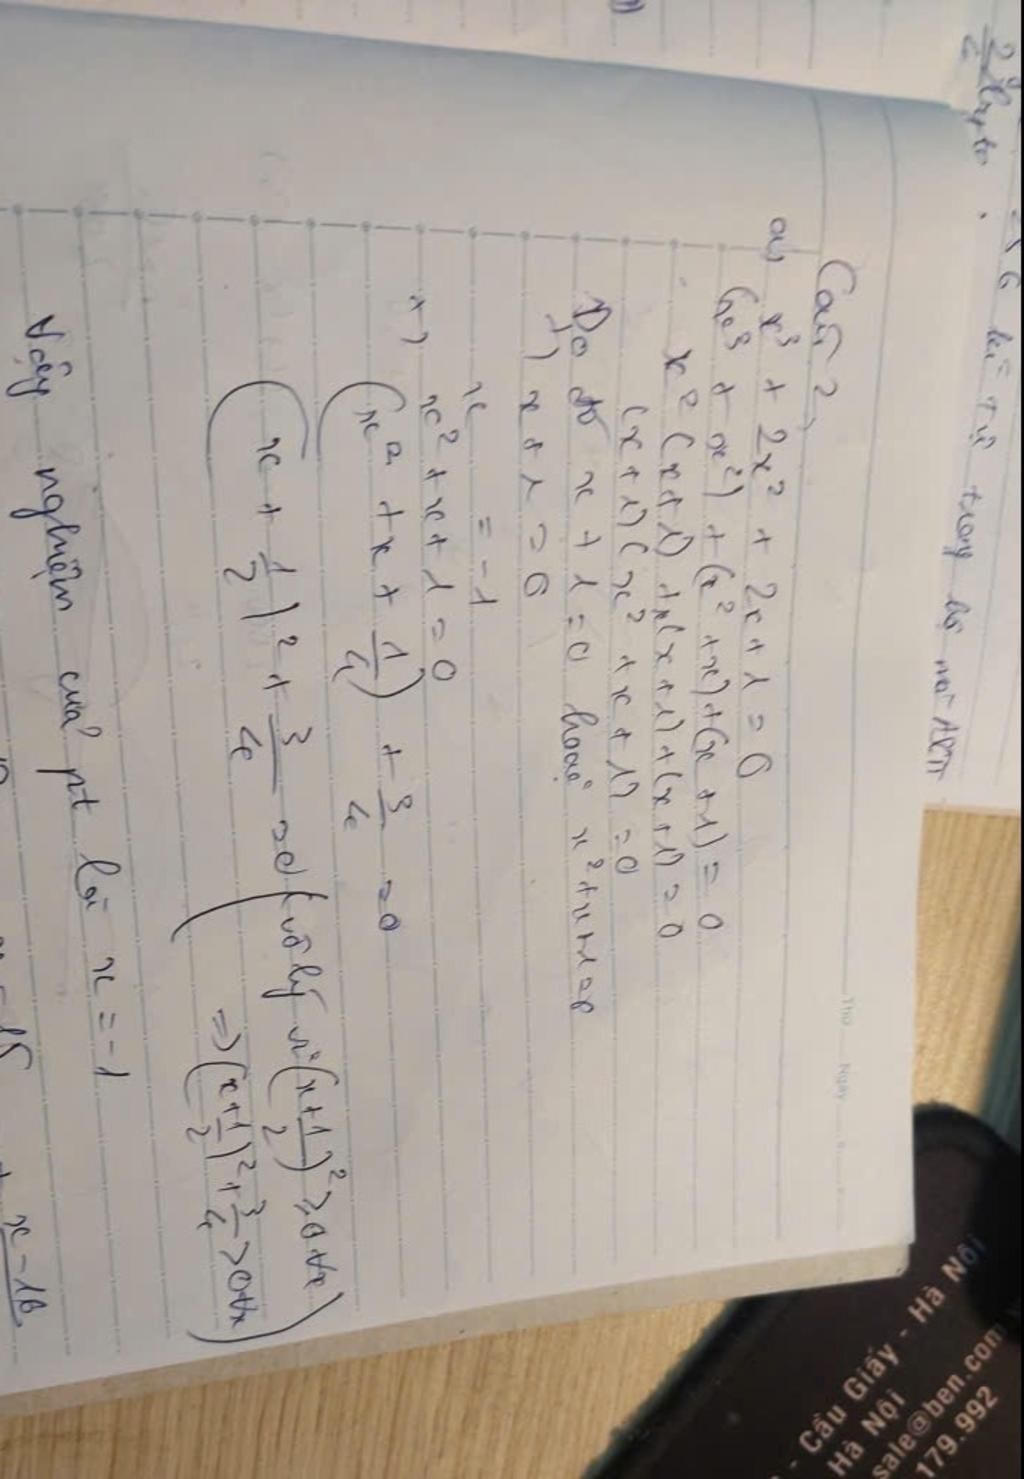 Câu 2,
a, x³ + 2x² + 2x + 1 = 0
(x³ + x²) + (x² + x) + (x + 1) = 0
x² (x+1) + x(x+1) + (x+1) = 0
(x+1) (x² + x + 1) = 0
Do đó x + 1 = 0 hoặc x² + x + 1 = 0
+) x + 1 = 0
x = -1
+) x² + x + 1 = 0
(x² + x + 1/4) + 3/4 = 0
(x + 1/2)² + 3/4 = 0 (vô lý vì (x + 1/2)² ≥ 0 ∀x
=> (x + 1/2)² + 3/4 > 0 ∀x)
Vậy nghiệm của pt là x = -1
x - 1B
Thứ Ngày
- Cầu Giấy - Hà Nội
Hà Nội
sale@ben.com
179.992